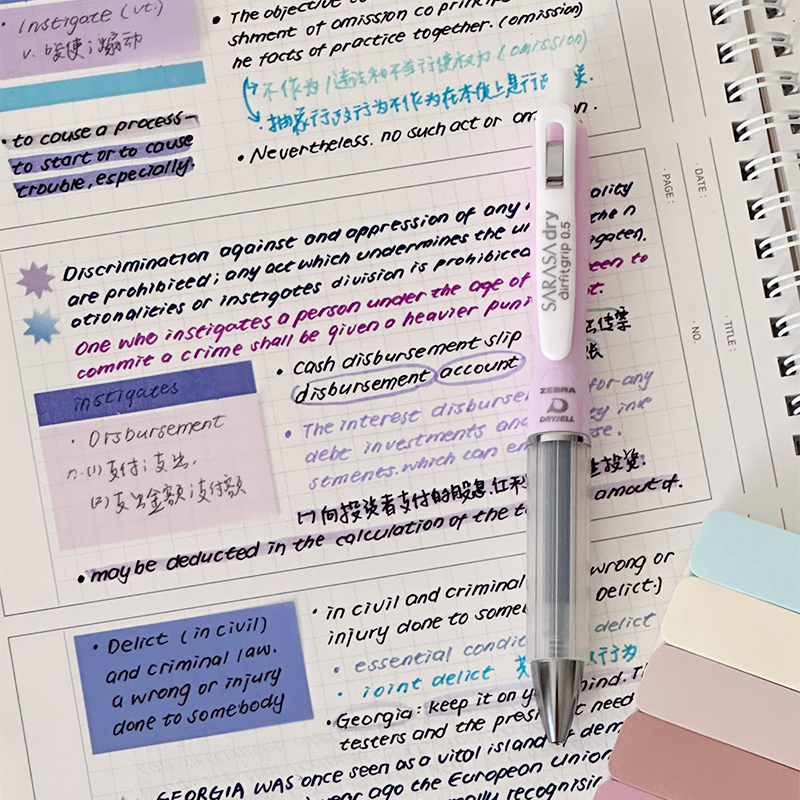 Instigate (vt.)
v. 唆使；煽动
• to cause a process–
to start or to cause
trouble, especially.
• The objective
shment of omission co
he facts of practice together. (omission)
不作为 / 违法和不当行使权力 (omission)
行为不作为在本质上是
• Nevertheless. no such act or
PAGE:
DATE:
NO.
TITLE:
Discrimination against and appression of any ality
are prohibited; any act which undermines the the n
otionalities or instigates division is prohibited
One who instigates a person under the age of to
commit a crime shall be given a heavier
instigates
• Disbursement
n. (1) 支付；支出.
(2) 支出金额；支付额
• cash disbursement slip
disbursement account
• The interest for any
debt investments
stments. which can
(-) 向投资者支付的股息. 投资.
• may be deducted in the calculation of the amount of.
• Delict (in civil)
and criminal law.
a wrong or injury
done to somebody
• in civil and criminal wrong or
injury done to Delict.)
• essential delict
• ioint delict 行为
• Georgia: keep it on
testers and the need
GEORGIA WAS once seen as a vital island of
ago the European Union
SARASA dry
dirfitgrip 0.5
ZEBRA
DRYJELL